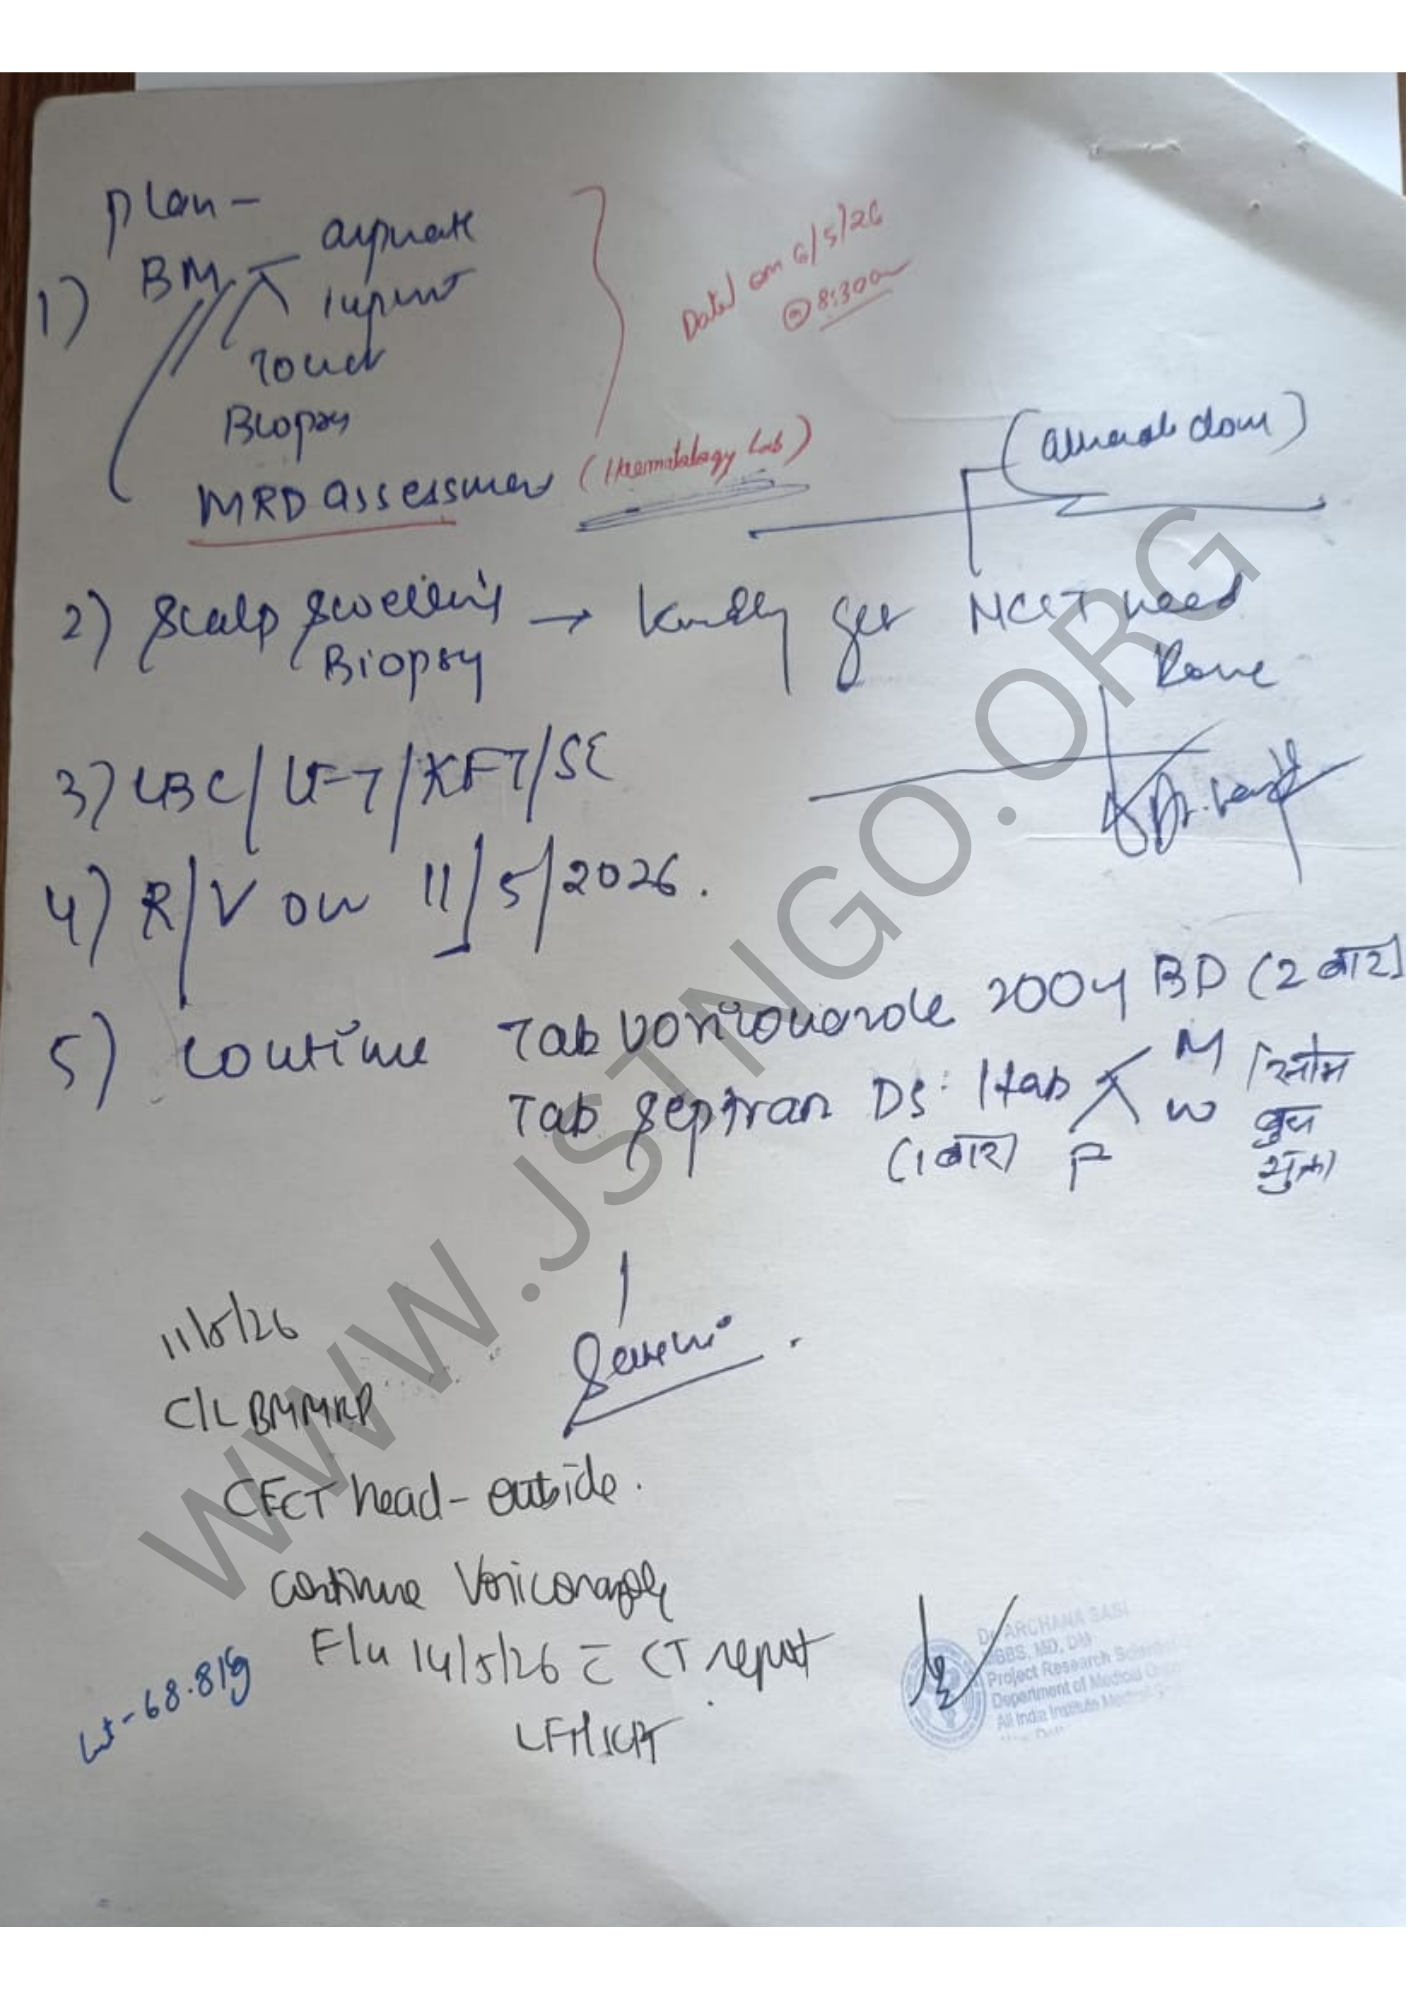 Plan -
1) BM aspirate
imprint
Touch
Biopsy
MRD assessment (Haematology Lab)
Dated on 6/5/26
@ 8:30am
(already done)
2) Scalp swelling → Kindly get NCCT head
Biopsy done
3) CBC/LFT/KFT/SE
Dr.
4) R/V on 11/5/2026.
5) Continue Tab Voriconazole 200 BD (2 बार)
Tab Septran DS 1 tab M सोम
W बुध
(1 बार) F शुक्र
11/5/26
C/L BM MRD
CECT head - outside.
Continue Voriconazole
F/u 14/5/26 c̄ CT report
LFT/KFT
Wt - 68.8
Dr. ARCHANA SASI
MBBS, MD, DM
Project Research Scientist
Department of Medical
All India Institute Medical
WWW.JSTNGO.ORG